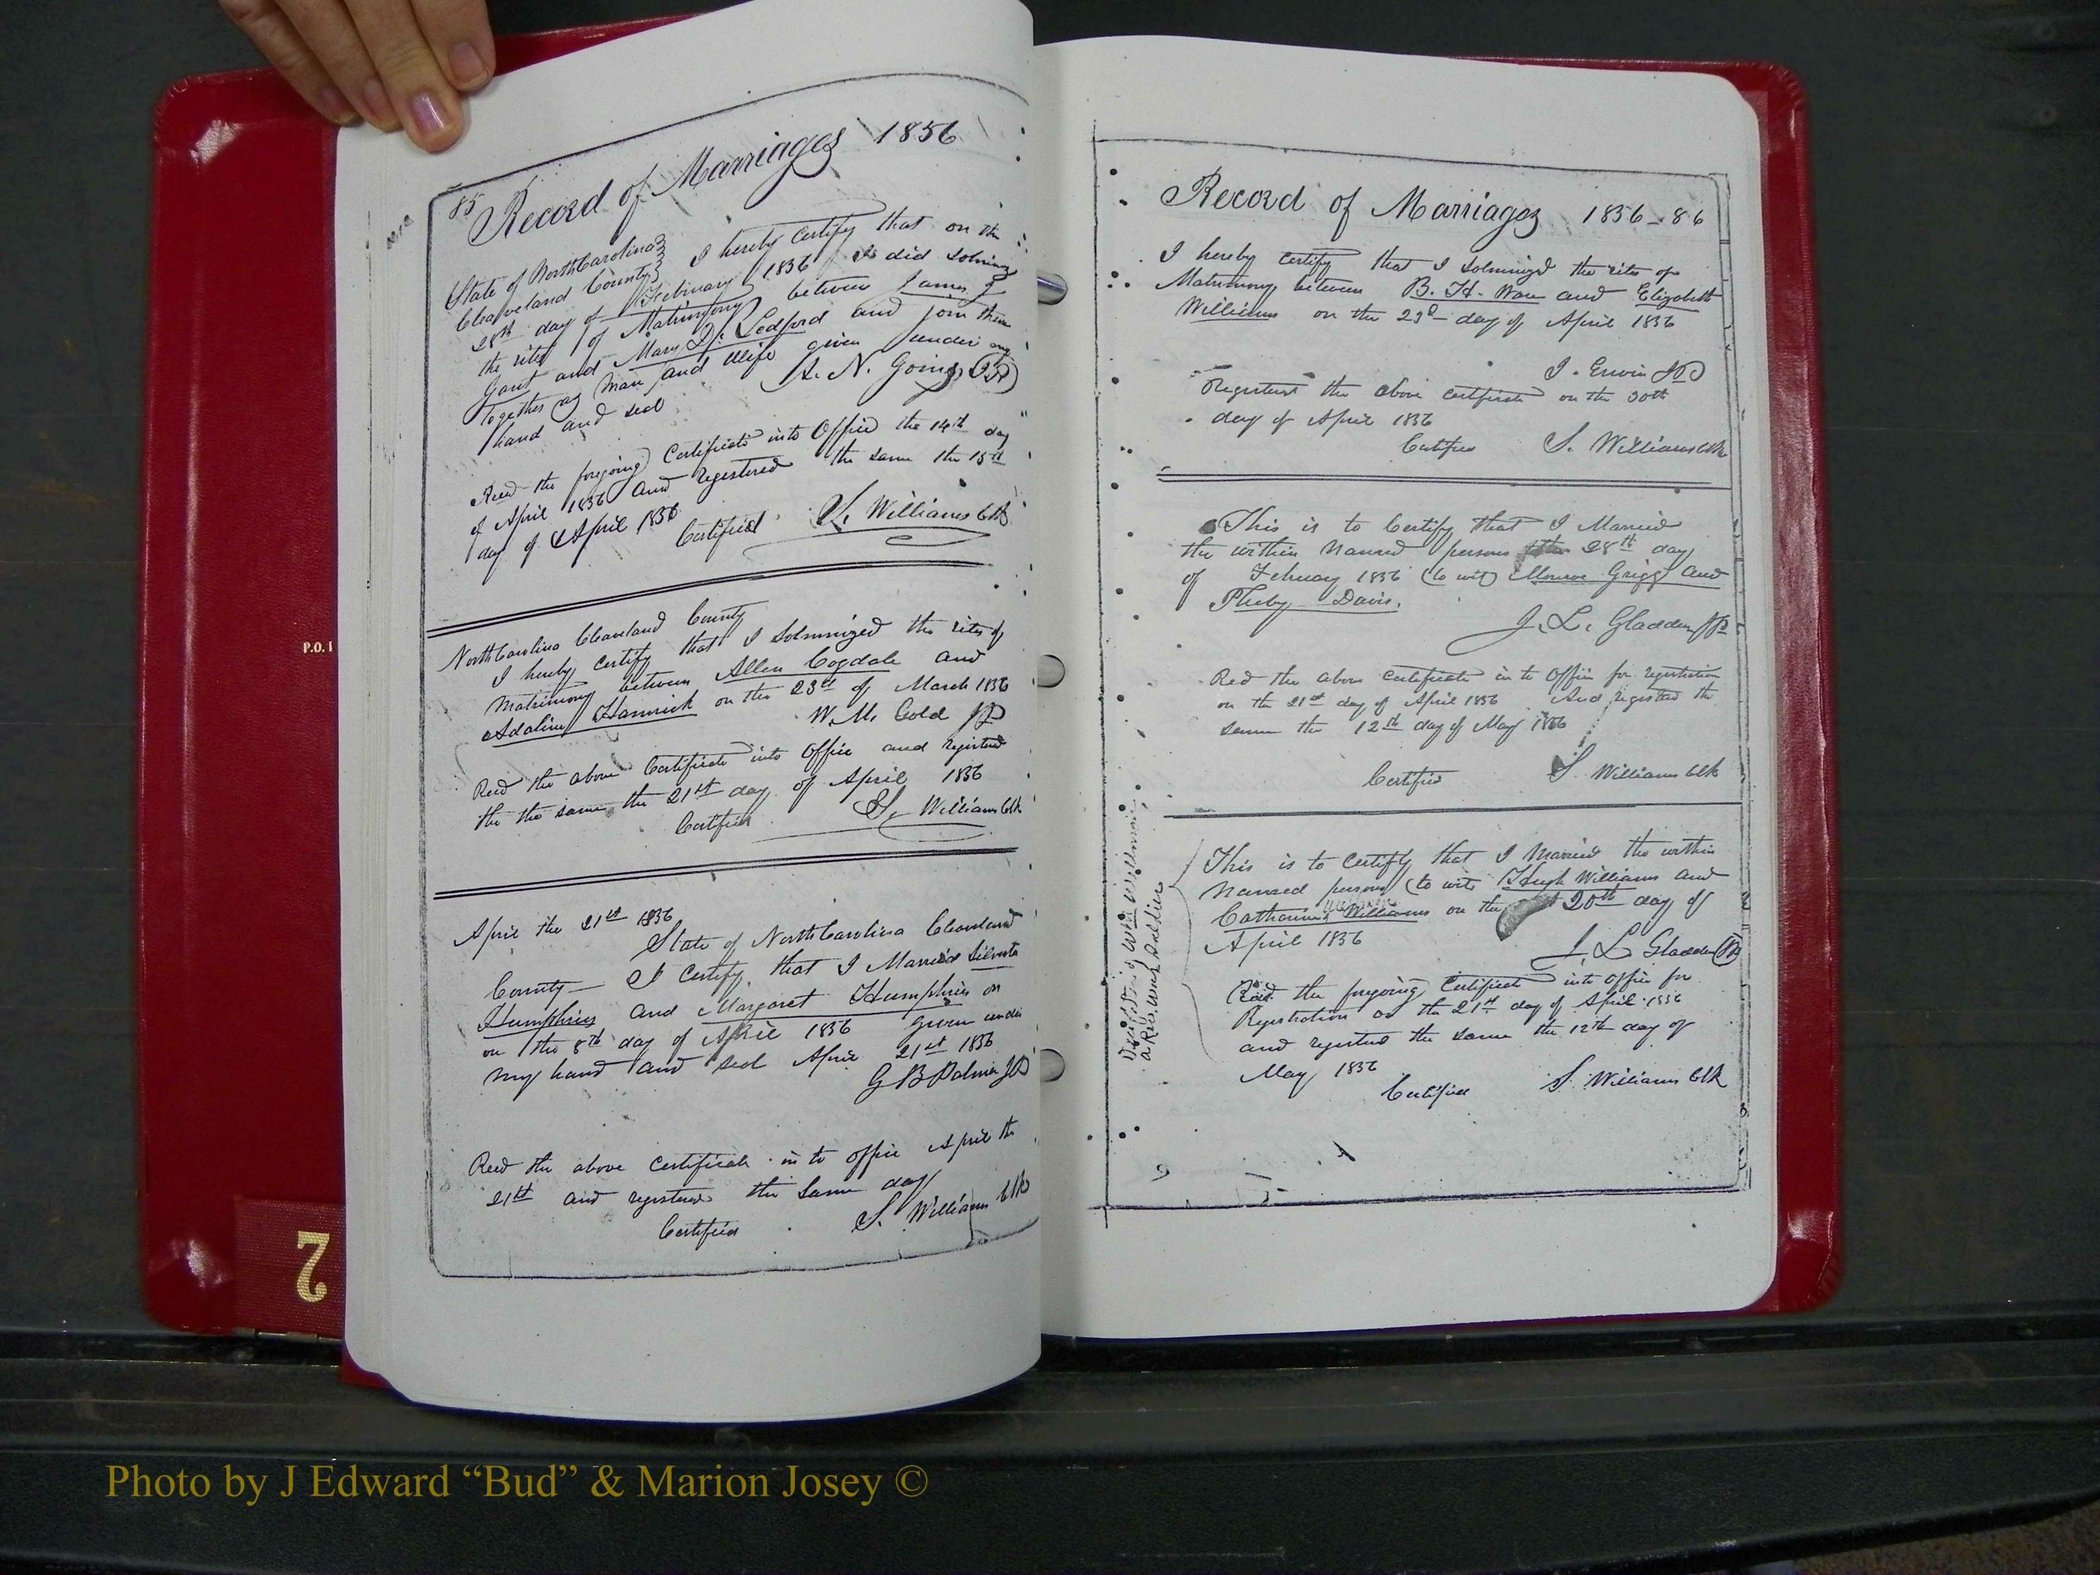 85 Record of Marriages 1856
State of North Carolina
Cleaveland County I hereby certify that on the
28th day of Febuary 1856 I did solmnize
the rites of Matrimony between James
Gant and Mary Ledford and join them
together as man and wife given under my
hand and seal A. N. Going JP
Recd the forgoing Certificate into Office the 14th day
of April 1856 and registered the same the 15th
day of April 1856
Certified S. Williams Clk
North Carolina Cleaveland County
I hereby certify that I Solmnized the rites of
Matrimony between Allen Cogdale and
Adaline Hamrick on the 23rd of March 1856
W. M. Gold JP
Recd the above Certificate into Office and registered
the the same the 21st day of April 1856
Certified S. Williams Clk
April the 21st 1856
State of North Carolina Cleaveland
County I certify that I Married
Humphries and Margaret Humphries on
on the 8th day of April 1856 Given under
my hand and seal April 21st 1856
G B Palmer JP
Recd the above certificate in to office April the
21st and registered the same day
Certified S. Williams Clk
P.O.
2
Record of Marriages 1856 - 86
I hereby certify that I solmnized the rites of
Matrimony between B. H. and Elizabeth
Williams on the 23d day of April 1856
J. Erwin JP
Registered the above certificate on the 30th
day of April 1856
Certified S. Williams Clk
This is to Certify that I Married
the within Named persons the 28th day
of Febuary 1856 (to wit) Monroe Grigg and
Pheby Davis.
J. L. Gladden JP
Recd the above certificate in to Office for registration
on the 21st day of April 1856 And registered the
same the 12th day of May 1856
Certified S. Williams Clk
This is to certify that I Married the within
Named persons (to wit) Hugh Williams and
Catharine Williams on the 20th day of
April 1856
J. L Gladden JP
Recd the forgoing Certificate into office for
Registration on the 21st day of April 1856
and registered the same the 12th day of
May 1856
Certified S. Williams Clk
Photo by J Edward “Bud” & Marion Josey ©